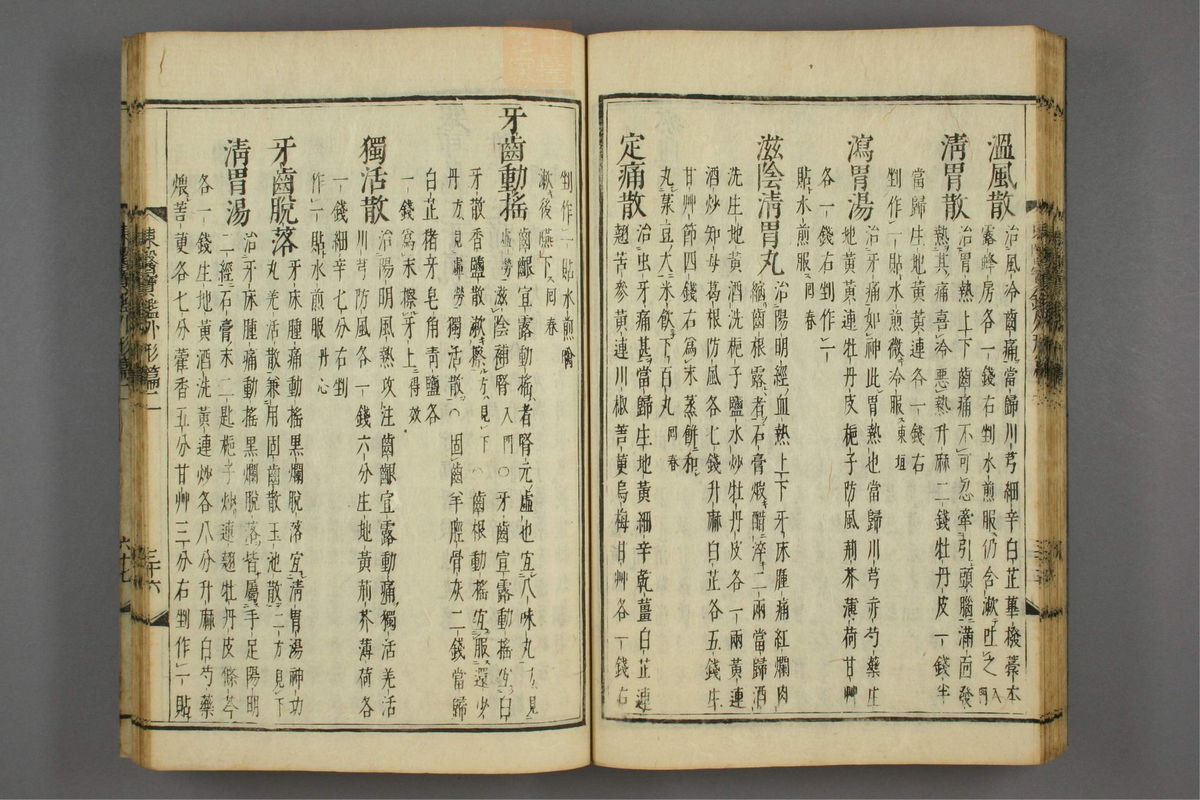 溫風散 治風冷齒痛當歸川芎細辛白芷蓽撥藁本
露蜂房各一錢右剉水煎服仍含漱吐之 入門
淸胃散 治胃熱上下齒痛不可忍牽引頭腦滿面發
熱其痛喜冷惡熱升麻二錢牡丹皮一錢半
當歸生地黃黃連各一錢右
剉作一貼水煎微冷服 東垣
瀉胃湯 治牙痛如神此胃熱也當歸川芎赤芍藥生
地黃黃連牡丹皮梔子防風荊芥薄荷甘艸
各一錢右剉作一
貼水煎服 回春
滋陰淸胃丸 治陽明經血熱上下牙床腫痛紅爛肉
縮齒根露者石膏煆醋淬二兩當歸酒
洗生地黃酒洗梔子鹽水炒牡丹皮各一兩黃連
酒炒知母葛根防風各七錢升麻白芷各五錢生
甘艸節四錢右爲末蒸餠和
丸菉豆大米飮下百丸 回春
定痛散 治虫牙痛甚當歸生地黃細辛乾薑白芷連
翹苦參黃連川椒苦莄烏梅甘艸各一錢右
剉作一貼水煎噙
漱後嚥下 回春
牙齒動搖 齒齦宜露動搖者腎元虛也宜八味丸 方見
虛勞 滋陰補腎 入門 ○牙齒宜露動搖宜白
牙散香鹽散漱擦 方見下 ○齒根動搖宜服還少
丹 方見虛勞 獨活散○固齒羊脛骨灰二錢當歸
白芷猪牙皂角靑鹽各
一錢爲末擦牙上 得效
獨活散 治陽明風熱攻注齒齦宜露動痛獨活羌活
川芎防風各一錢六分生地黃荊芥薄荷各
一錢細辛七分右剉
作一貼水煎服 丹心
牙齒脫落 牙床腫痛動搖黑爛脫落宜淸胃湯神功
丸羌活散兼用固齒散玉池散 二方見下
淸胃湯 治牙床腫痛動搖黑爛脫落皆屬手足陽明
二經石膏末二匙梔子炒連翹牡丹皮條芩
各一錢生地黃酒洗黃連炒各八分升麻白芍藥
煨苦莄各七分藿香五分甘艸三分右剉作一貼
東醫寶鑑外形篇二
三十六